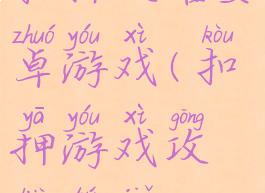 zhuó yóu xì kòu
卓游戏(扣
yā yóu xì gōng
押游戏攻